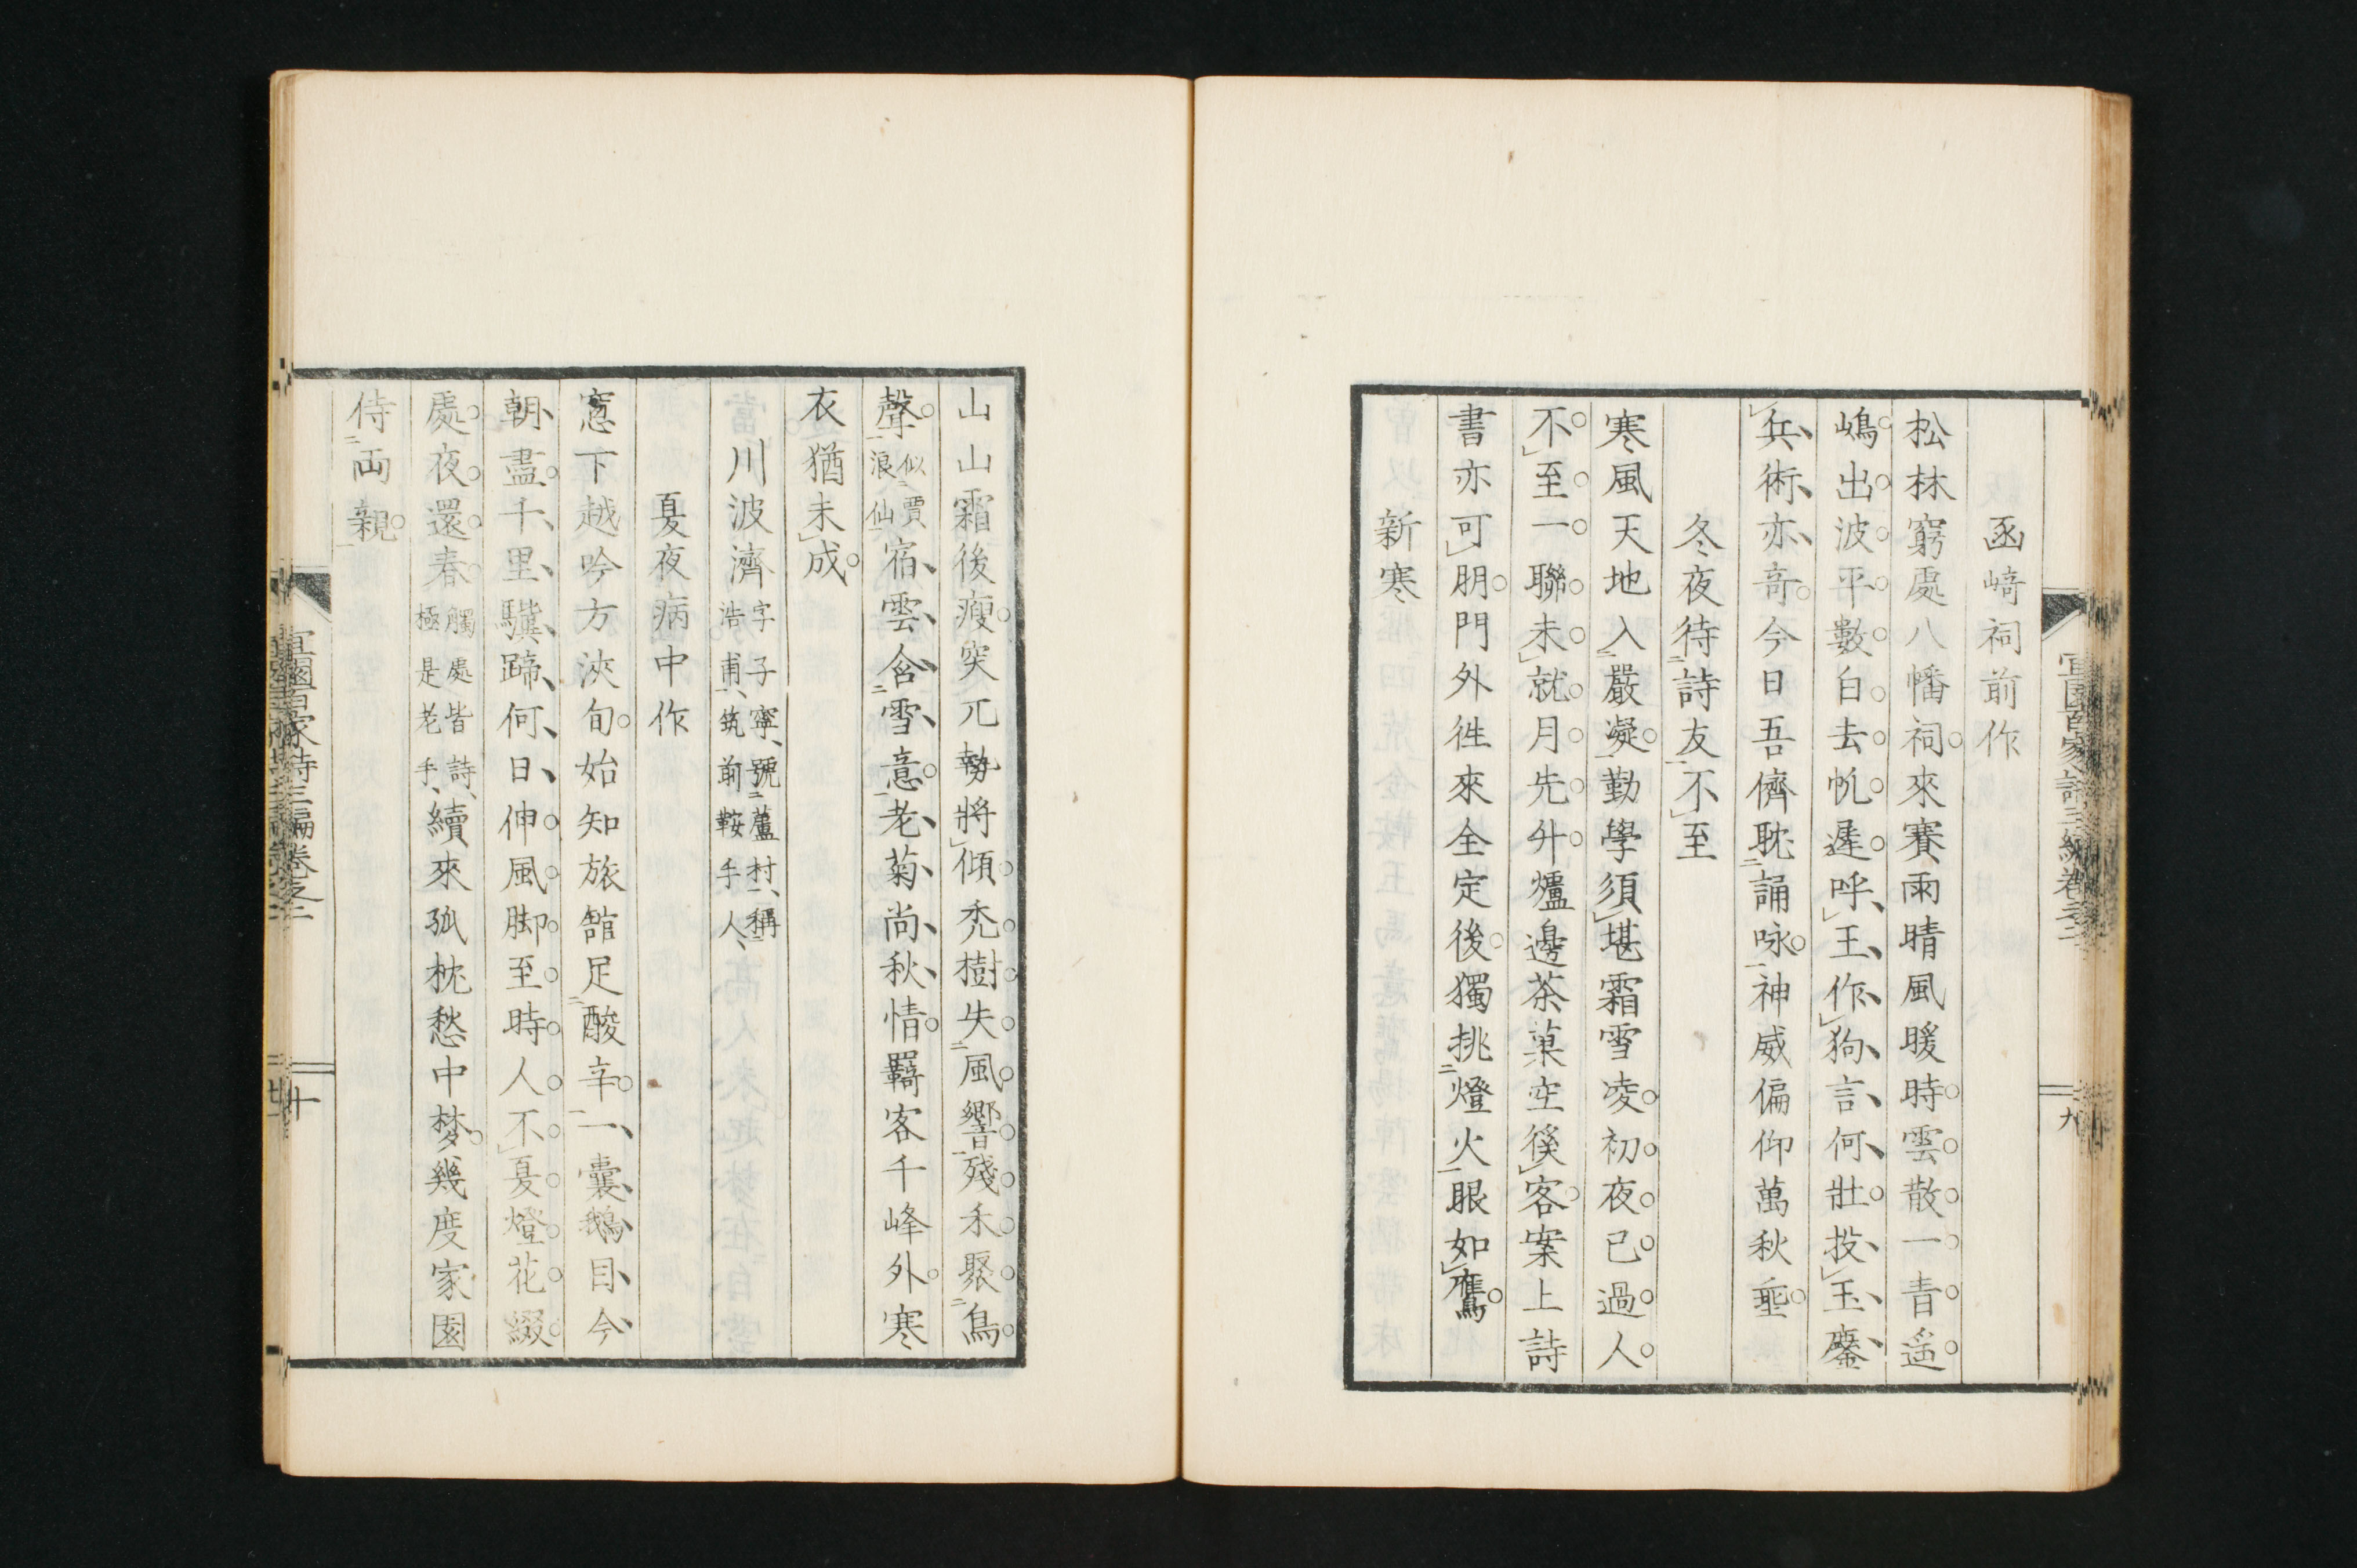 函﨑祠前作
松林窮處八幡祠來賽雨晴風暖時雲散一青遥
嶋出波平數白去帆遅呼王作狗言何壯投玉鏖
兵術亦奇今日吾儕耽誦咏神威偏仰萬秋垂
冬夜待詩友不至
寒風天地入嚴凝勤學須堪霜雪凌初夜已過人
不至一聯未就月先升爐邊茶菓空徯客案上詩
書亦可朋門外徃來全定後獨挑燈火眼如鷹
新寒
宜園百家詩三編卷之二
九
山山霜後瘦突兀勢將傾禿樹失風響殘禾聚鳥
聲似賈浪仙宿雲含雪意老菊尚秋情羇客千峰外寒
衣猶未成
川波濟字子寧、號蘆村、稱浩甫、筑前鞍手人、
夏夜病中作
窓下越吟方浹旬始知旅館足酸辛一囊鵝目今
朝盡千里驥蹄何日伸風脚至時人不夏燈花綴
處夜還春觸處皆詩、極是老手、續來孤枕愁中梦幾度家園
侍両親
宜園百家詩三編卷之二
十